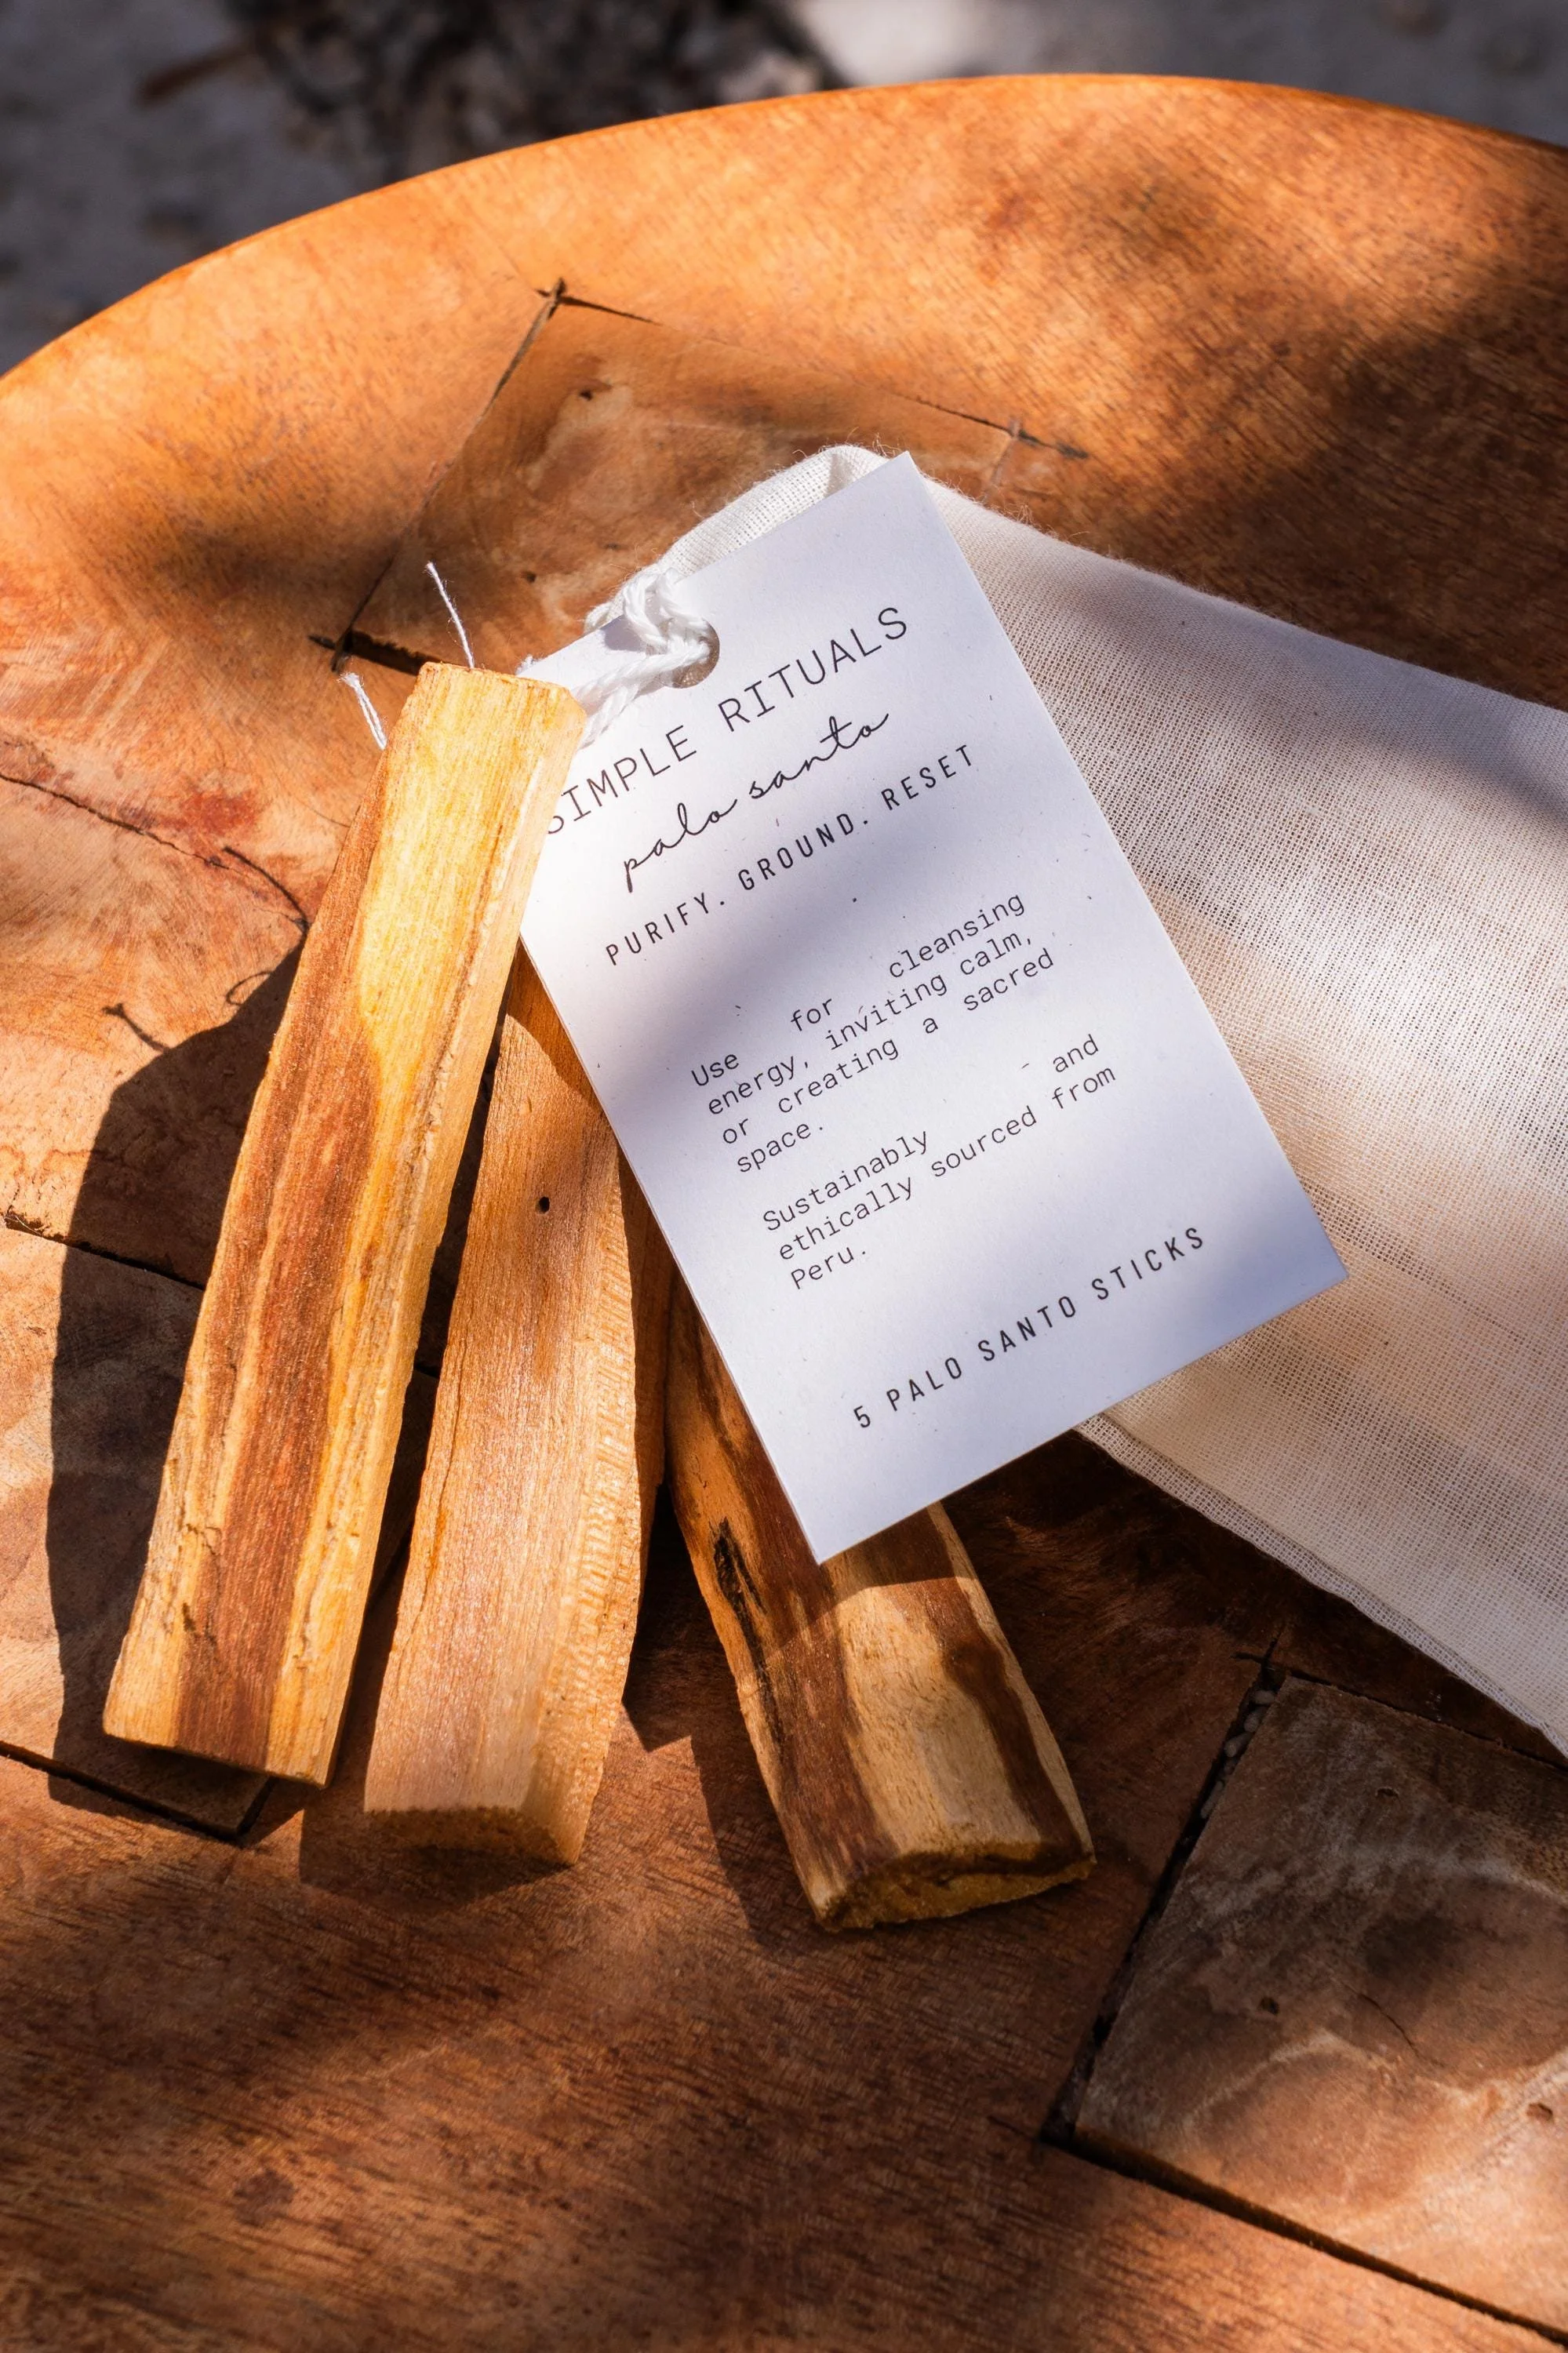 SIMPLE RITUALS
palo santo
PURIFY. GROUND. RESET
Use for cleansing
energy, inviting calm,
or creating a sacred
space.
Sustainably - and
ethically sourced from
Peru.
5 PALO SANTO STICKS